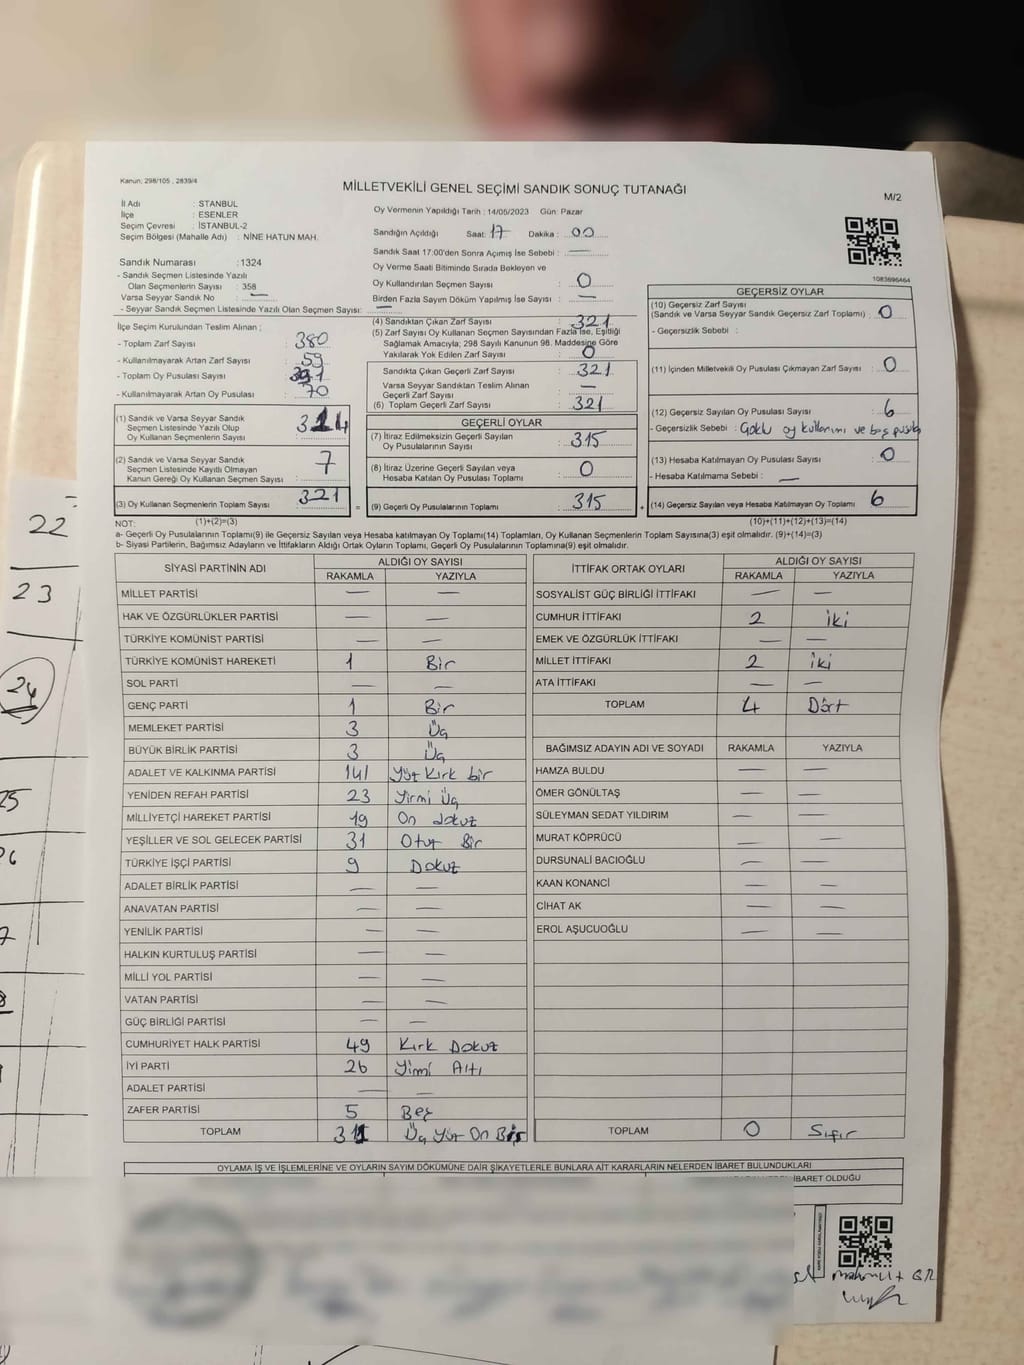 Kanun: 298/105 , 2839/4
MİLLETVEKİLİ GENEL SEÇİMİ SANDIK SONUÇ TUTANAĞI
M/2
İl Adı : STANBUL
İlçe : ESENLER
Seçim Çevresi : İSTANBUL-2
Seçim Bölgesi (Mahalle Adı) : NİNE HATUN MAH.
Sandık Numarası :1324
- Sandık Seçmen Listesinde Yazılı
Olan Seçmenlerin Sayısı : 358
Varsa Seyyar Sandık No : —
- Seyyar Sandık Seçmen Listesinde Yazılı Olan Seçmen Sayısı: —
Oy Vermenin Yapıldığı Tarih : 14/05/2023 Gün: Pazar
Sandığın Açıldığı Saat: 17 Dakika : 00
Sandık Saat 17:00'den Sonra Açımış İse Sebebi : —
Oy Verme Saati Bitiminde Sırada Bekleyen ve
Oy Kullandırılan Seçmen Sayısı : 0
Birden Fazla Sayım Döküm Yapılmış İse Sayısı : —
1083696464
İlçe Seçim Kurulundan Teslim Alınan ;
- Toplam Zarf Sayısı : 380
- Kullanılmayarak Artan Zarf Sayısı : 59
- Toplam Oy Pusulası Sayısı :
- Kullanılmayarak Artan Oy Pusulası : 70
(1) Sandık ve Varsa Seyyar Sandık
Seçmen Listesinde Yazılı Olup
Oy Kullanan Seçmenlerin Sayısı : 314
(2) Sandık ve Varsa Seyyar Sandık
Seçmen Listesinde Kayıtlı Olmayan
Kanun Gereği Oy Kullanan Seçmen Sayısı : 7
(3) Oy Kullanan Seçmenlerin Toplam Sayısı : 321
(4) Sandıktan Çıkan Zarf Sayısı : 321
(5) Zarf Sayısı Oy Kullanan Seçmen Sayısından Fazla İse, Eşitliği
Sağlamak Amacıyla; 298 Sayılı Kanunun 98. Maddesine Göre
Yakılarak Yok Edilen Zarf Sayısı : 0
Sandıkta Çıkan Geçerli Zarf Sayısı : 321
Varsa Seyyar Sandıktan Teslim Alınan
Geçerli Zarf Sayısı : —
(6) Toplam Geçerli Zarf Sayısı : 321
GEÇERLİ OYLAR
(7) İtiraz Edilmeksizin Geçerli Sayılan
Oy Pusulalarının Sayısı : 315
(8) İtiraz Üzerine Geçerli Sayılan veya
Hesaba Katılan Oy Pusulası Toplamı : 0
= (9) Geçerli Oy Pusulalarının Toplamı : 315 +
GEÇERSİZ OYLAR
(10) Geçersiz Zarf Sayısı
(Sandık ve Varsa Seyyar Sandık Geçersiz Zarf Toplamı) : 0
- Geçersizlik Sebebi :
(11) İçinden Milletvekili Oy Pusulası Çıkmayan Zarf Sayısı : 0
(12) Geçersiz Sayılan Oy Pusulası Sayısı : 6
- Geçersizlik Sebebi : Çoklu oy kullanımı ve boş pusula
(13) Hesaba Katılmayan Oy Pusulası Sayısı : 0
- Hesaba Katılmama Sebebi : —
(14) Geçersiz Sayılan veya Hesaba Katılmayan Oy Toplamı : 6
NOT: (1)+(2)=(3) (10)+(11)+(12)+(13)=(14)
a- Geçerli Oy Pusulalarının Toplamı(9) ile Geçersiz Sayılan veya Hesaba katılmayan Oy Toplamı(14) Toplamları, Oy Kullanan Seçmenlerin Toplam Sayısına(3) eşit olmalıdır. (9)+(14)=(3)
b- Siyasi Partilerin, Bağımsız Adayların ve İttifakların Aldığı Ortak Oyların Toplamı, Geçerli Oy Pusulalarının Toplamına(9) eşit olmalıdır.
SİYASİ PARTİNİN ADI ALDIĞI OY SAYISI
RAKAMLA YAZIYLA
MİLLET PARTİSİ — —
HAK VE ÖZGÜRLÜKLER PARTİSİ — —
TÜRKİYE KOMÜNİST PARTİSİ — —
TÜRKİYE KOMÜNİST HAREKETİ 1 Bir
SOL PARTİ — —
GENÇ PARTİ 1 Bir
MEMLEKET PARTİSİ 3 Üç
BÜYÜK BİRLİK PARTİSİ 3 Üç
ADALET VE KALKINMA PARTİSİ 141 Yüz Kırk bir
YENİDEN REFAH PARTİSİ 23 Yirmi Üç
MİLLİYETÇİ HAREKET PARTİSİ 19 On dokuz
YEŞİLLER VE SOL GELECEK PARTİSİ 31 Otuz Bir
TÜRKİYE İŞÇİ PARTİSİ 9 Dokuz
ADALET BİRLİK PARTİSİ — —
ANAVATAN PARTİSİ — —
YENİLİK PARTİSİ — —
HALKIN KURTULUŞ PARTİSİ — —
MİLLİ YOL PARTİSİ — —
VATAN PARTİSİ — —
GÜÇ BİRLİĞİ PARTİSİ — —
CUMHURİYET HALK PARTİSİ 49 Kırk Dokuz
İYİ PARTİ 26 Yirmi Altı
ADALET PARTİSİ — —
ZAFER PARTİSİ 5 Beş
TOPLAM 311 Üç Yüz On Bir
İTTİFAK ORTAK OYLARI ALDIĞI OY SAYISI
RAKAMLA YAZIYLA
SOSYALİST GÜÇ BİRLİĞİ İTTİFAKI — —
CUMHUR İTTİFAKI 2 iki
EMEK VE ÖZGÜRLÜK İTTİFAKI — —
MİLLET İTTİFAKI 2 iki
ATA İTTİFAKI — —
TOPLAM 4 Dört
BAĞIMSIZ ADAYIN ADI VE SOYADI RAKAMLA YAZIYLA
HAMZA BULDU — —
ÖMER GÖNÜLTAŞ — —
SÜLEYMAN SEDAT YILDIRIM — —
MURAT KÖPRÜCÜ — —
DURSUNALİ BACIOĞLU — —
KAAN KONANCİ — —
CİHAT AK — —
EROL AŞUCUOĞLU — —
TOPLAM 0 Sıfır
OYLAMA İŞ VE İŞLEMLERİNE VE OYLARIN SAYIM DÖKÜMÜNE DAİR ŞİKAYETLERLE BUNLARA AİT KARARLARIN NELERDEN İBARET BULUNDUKLARI
İBARET OLDUĞU
22
23
24
25